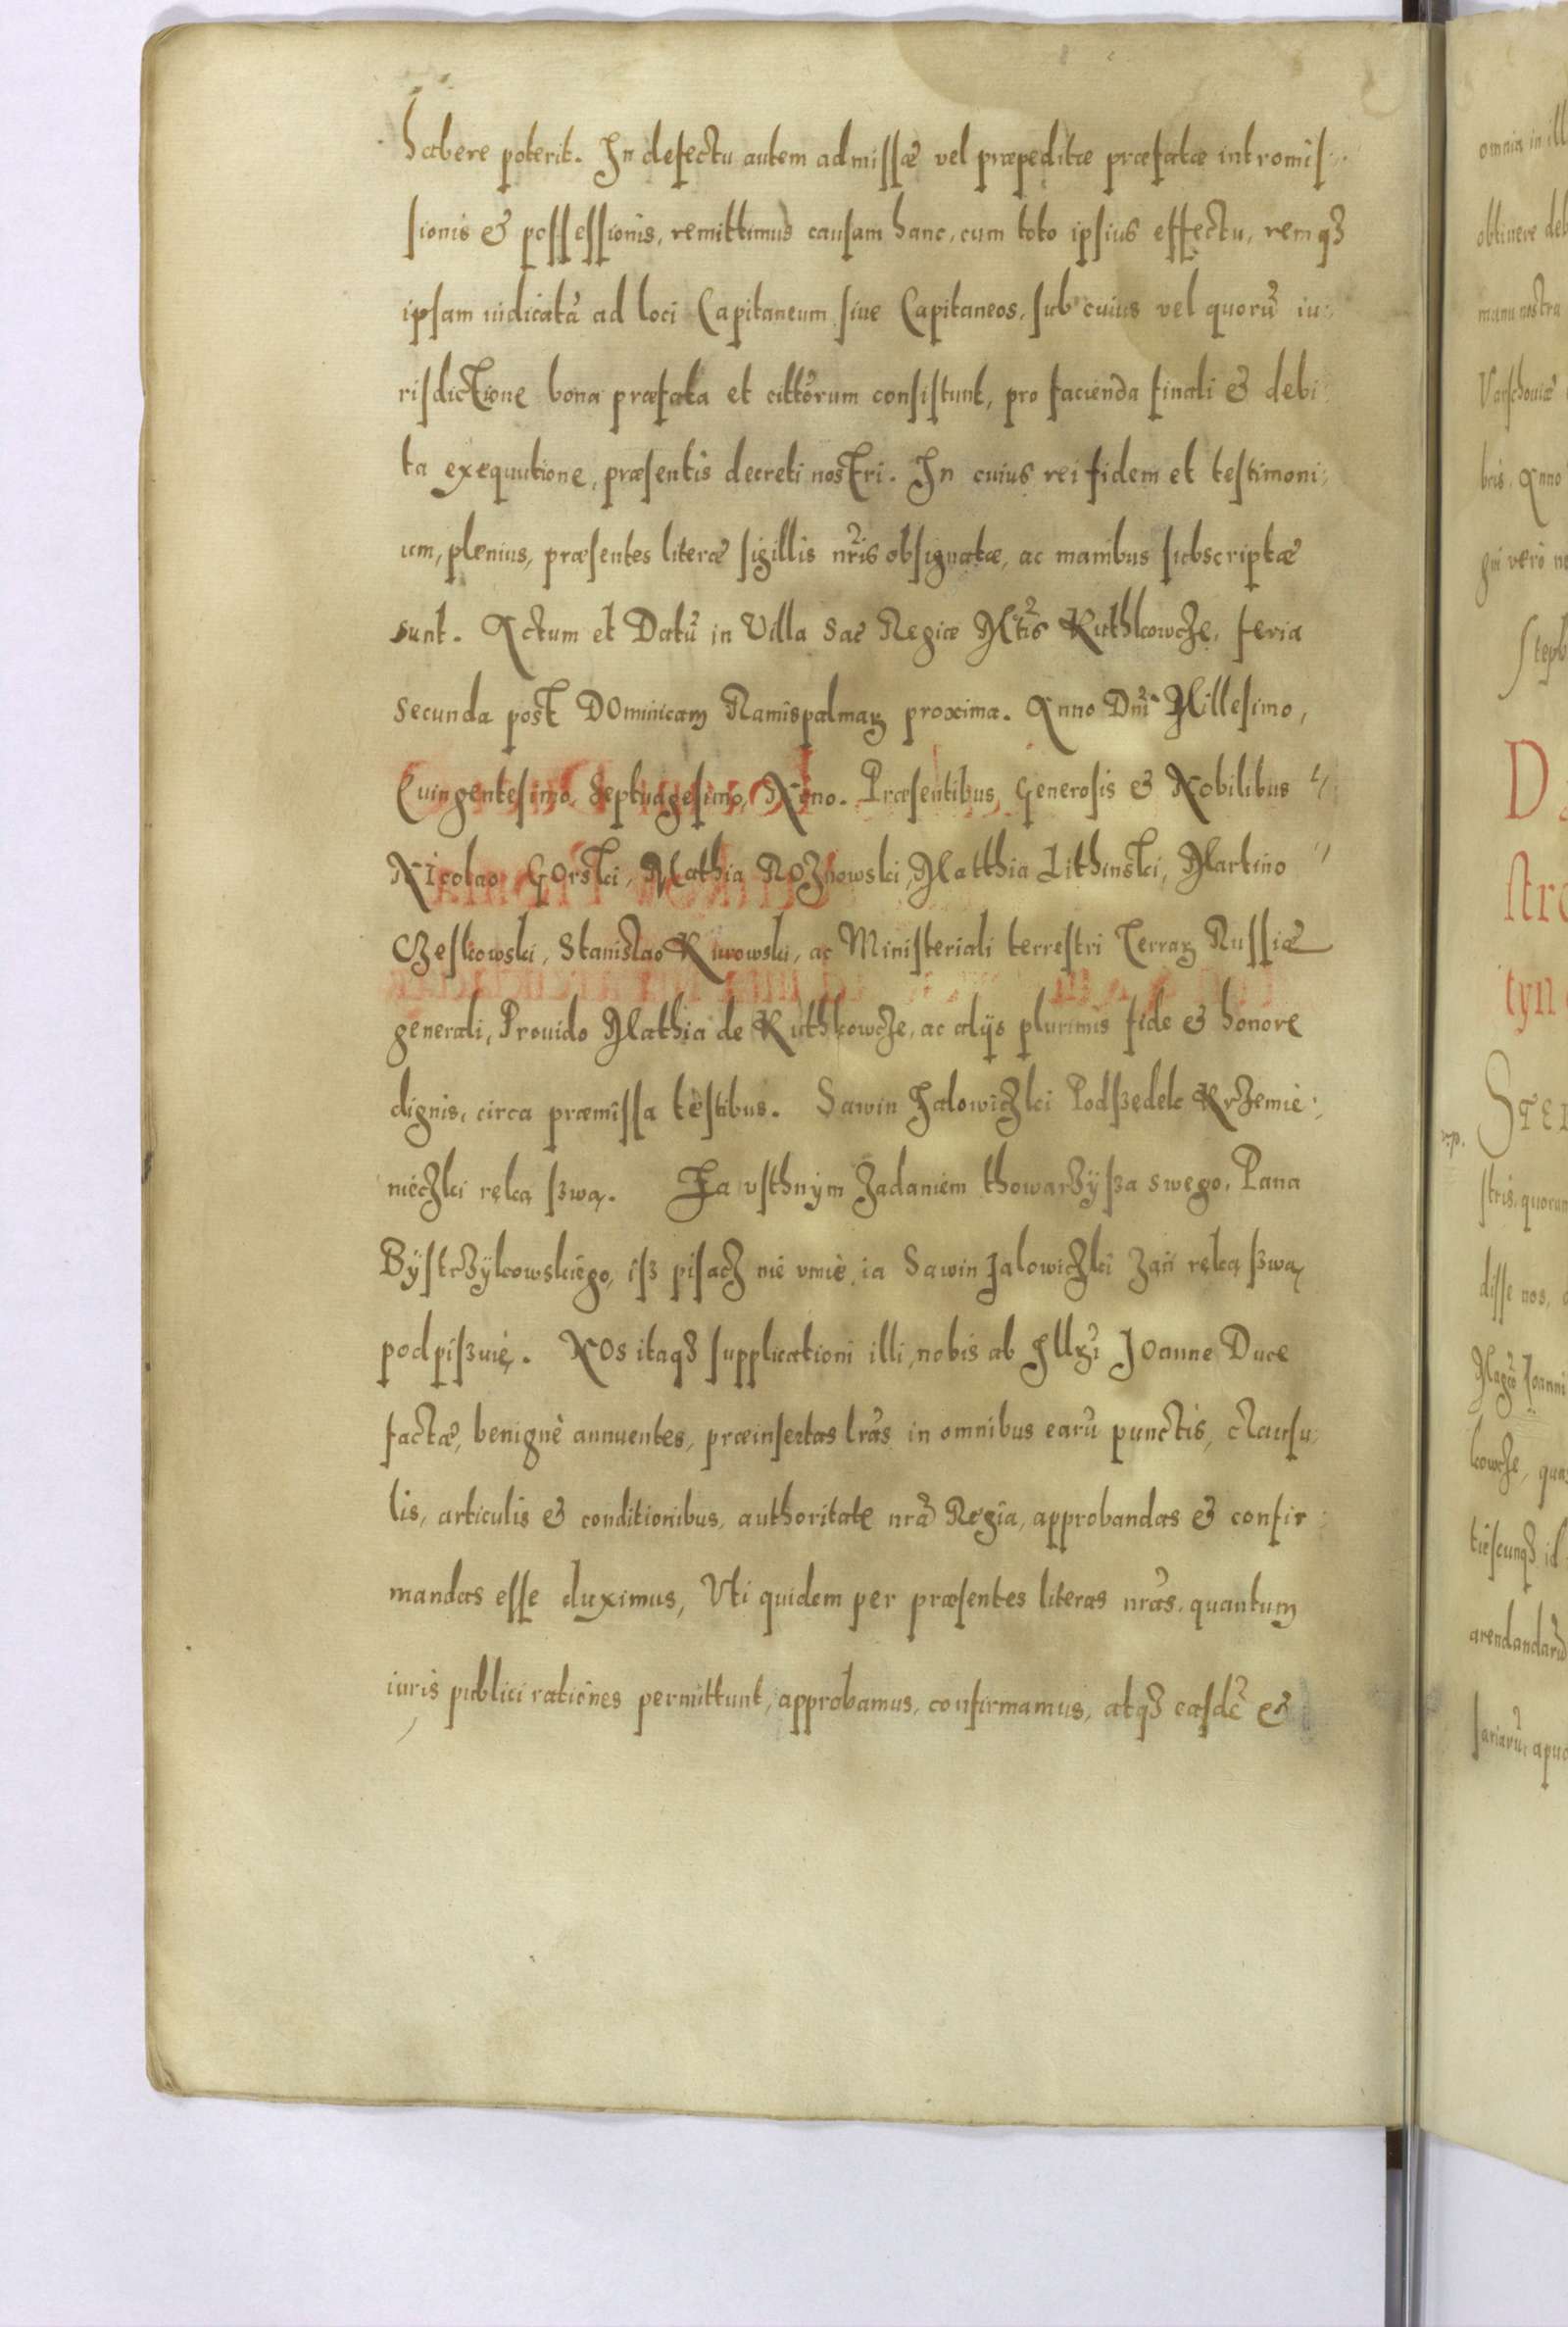 habere poterit. In defectu autem admissæ vel præpeditæ præfatæ intromis:
sionis & possessionis, remittimus causam hanc, cum toto ipsius effectu, remqȝ
ipsam iudicatā ad loci Capitaneum siue Capitaneos, sub cuius vel quorū iu:
risdictione bona præfata et cittorum consistunt, pro facienda finali & debi:
ta exequutione, præsentis decreti nostri. In cuius rei fidem et testimoni:
um, plenius, præsentes literæ sigillis nris obsignatæ, ac manibus subscriptæ
sunt. Actum et Datū in Villa Sac Regiæ Mtis Ruthkowcze, feria
secunda post Dominicam Ramispalmaꝝ proxima. Anno Dni Millesimo,
Quingentesimo Septuagesimo, Nono. Præsentibus, Generosis & Nobilibus
Nicolao Gorski, Mathia Roznowski, Matthia Lithinski, Martino
Czeskowski, Stanislao Kurowski, ac Ministeriali terrestri Terraꝝ Russiæ
generali, Prouido Mathia de Ruthkowcze, ac alijs plurimis fide & honore
dignis, circa præmissa testibus. Sawin Jalowiczki Podsędek Krzemie:
nieczki ręką swą. Za vsthnym żadaniem thowarzyßa swego, Pana
Bystrzykowskiego, iß pisacz nie vmie, ia Sawin Jalowiczki zań ręką ßwą
podpißuię. Nos itaqȝ supplicationi illi, nobis ab Illri Joanne Duce
factæ, benignè annuentes, præinsertas lras in omnibus earū punctis, clausu:
lis, articulis & conditionibus, authoritate nra Regia, approbandas & confir:
mandas esse duximus, Vti quidem per præsentes literas nras, quantum
iuris publici rationes permittunt, approbamus, confirmamus, atqȝ easdē &